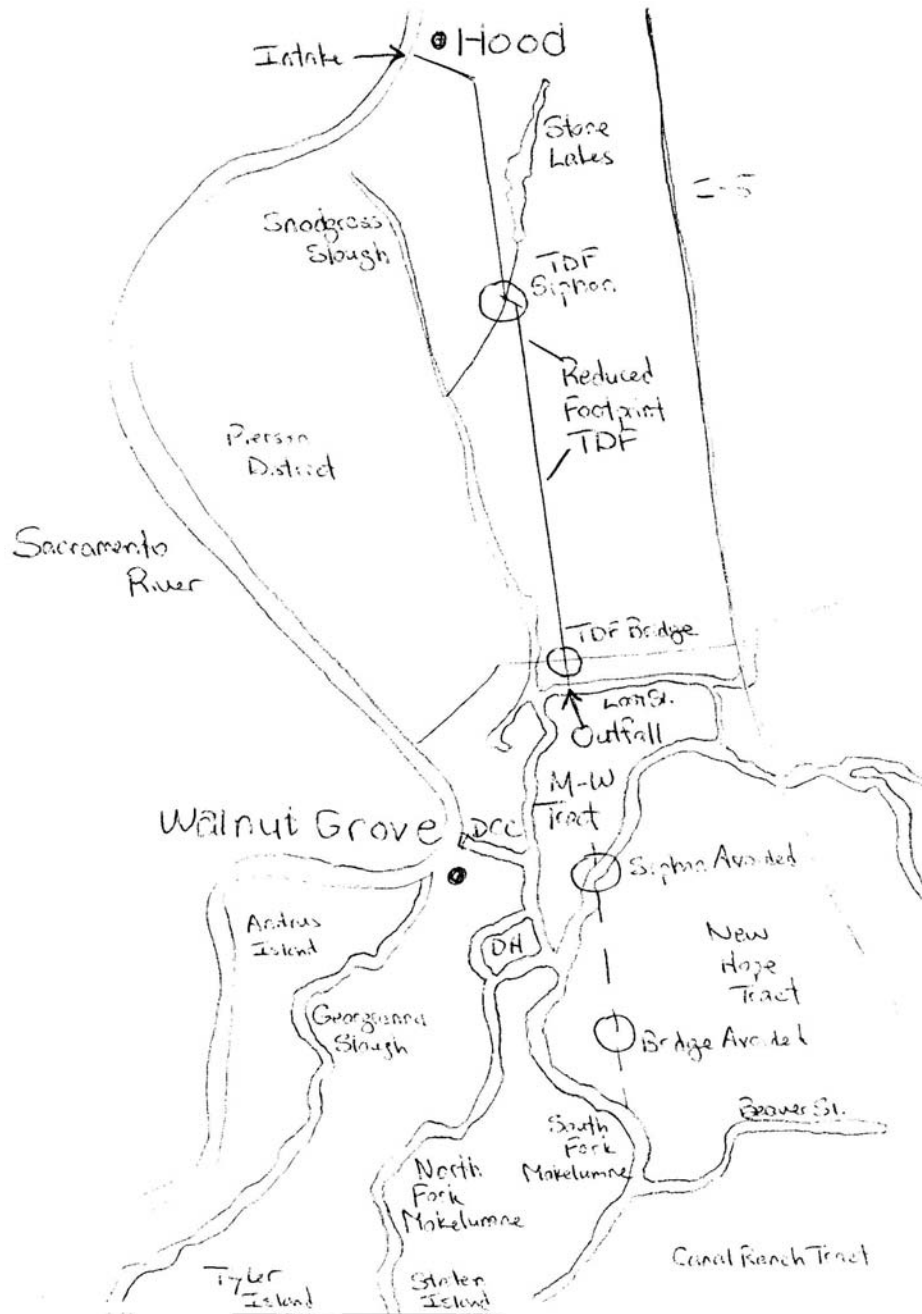 Hood
Intake
Stone
Lakes
I-5
Snodgrass
Slough
TDF
Siphon
Reduced
Footprint
TDF
Pierson
District
Sacramento
River
TDF Bridge
Lost Sl.
Outfall
M-W
Tract
Walnut Grove
DCC
Siphon Avoided
Andrus
Island
DH
New
Hope
Tract
Georgianna
Slough
Bridge Avoided
Beaver Sl.
South
Fork
Mokelumne
North
Fork
Mokelumne
Canal Ranch Tract
Tyler
Island
Staten
Island